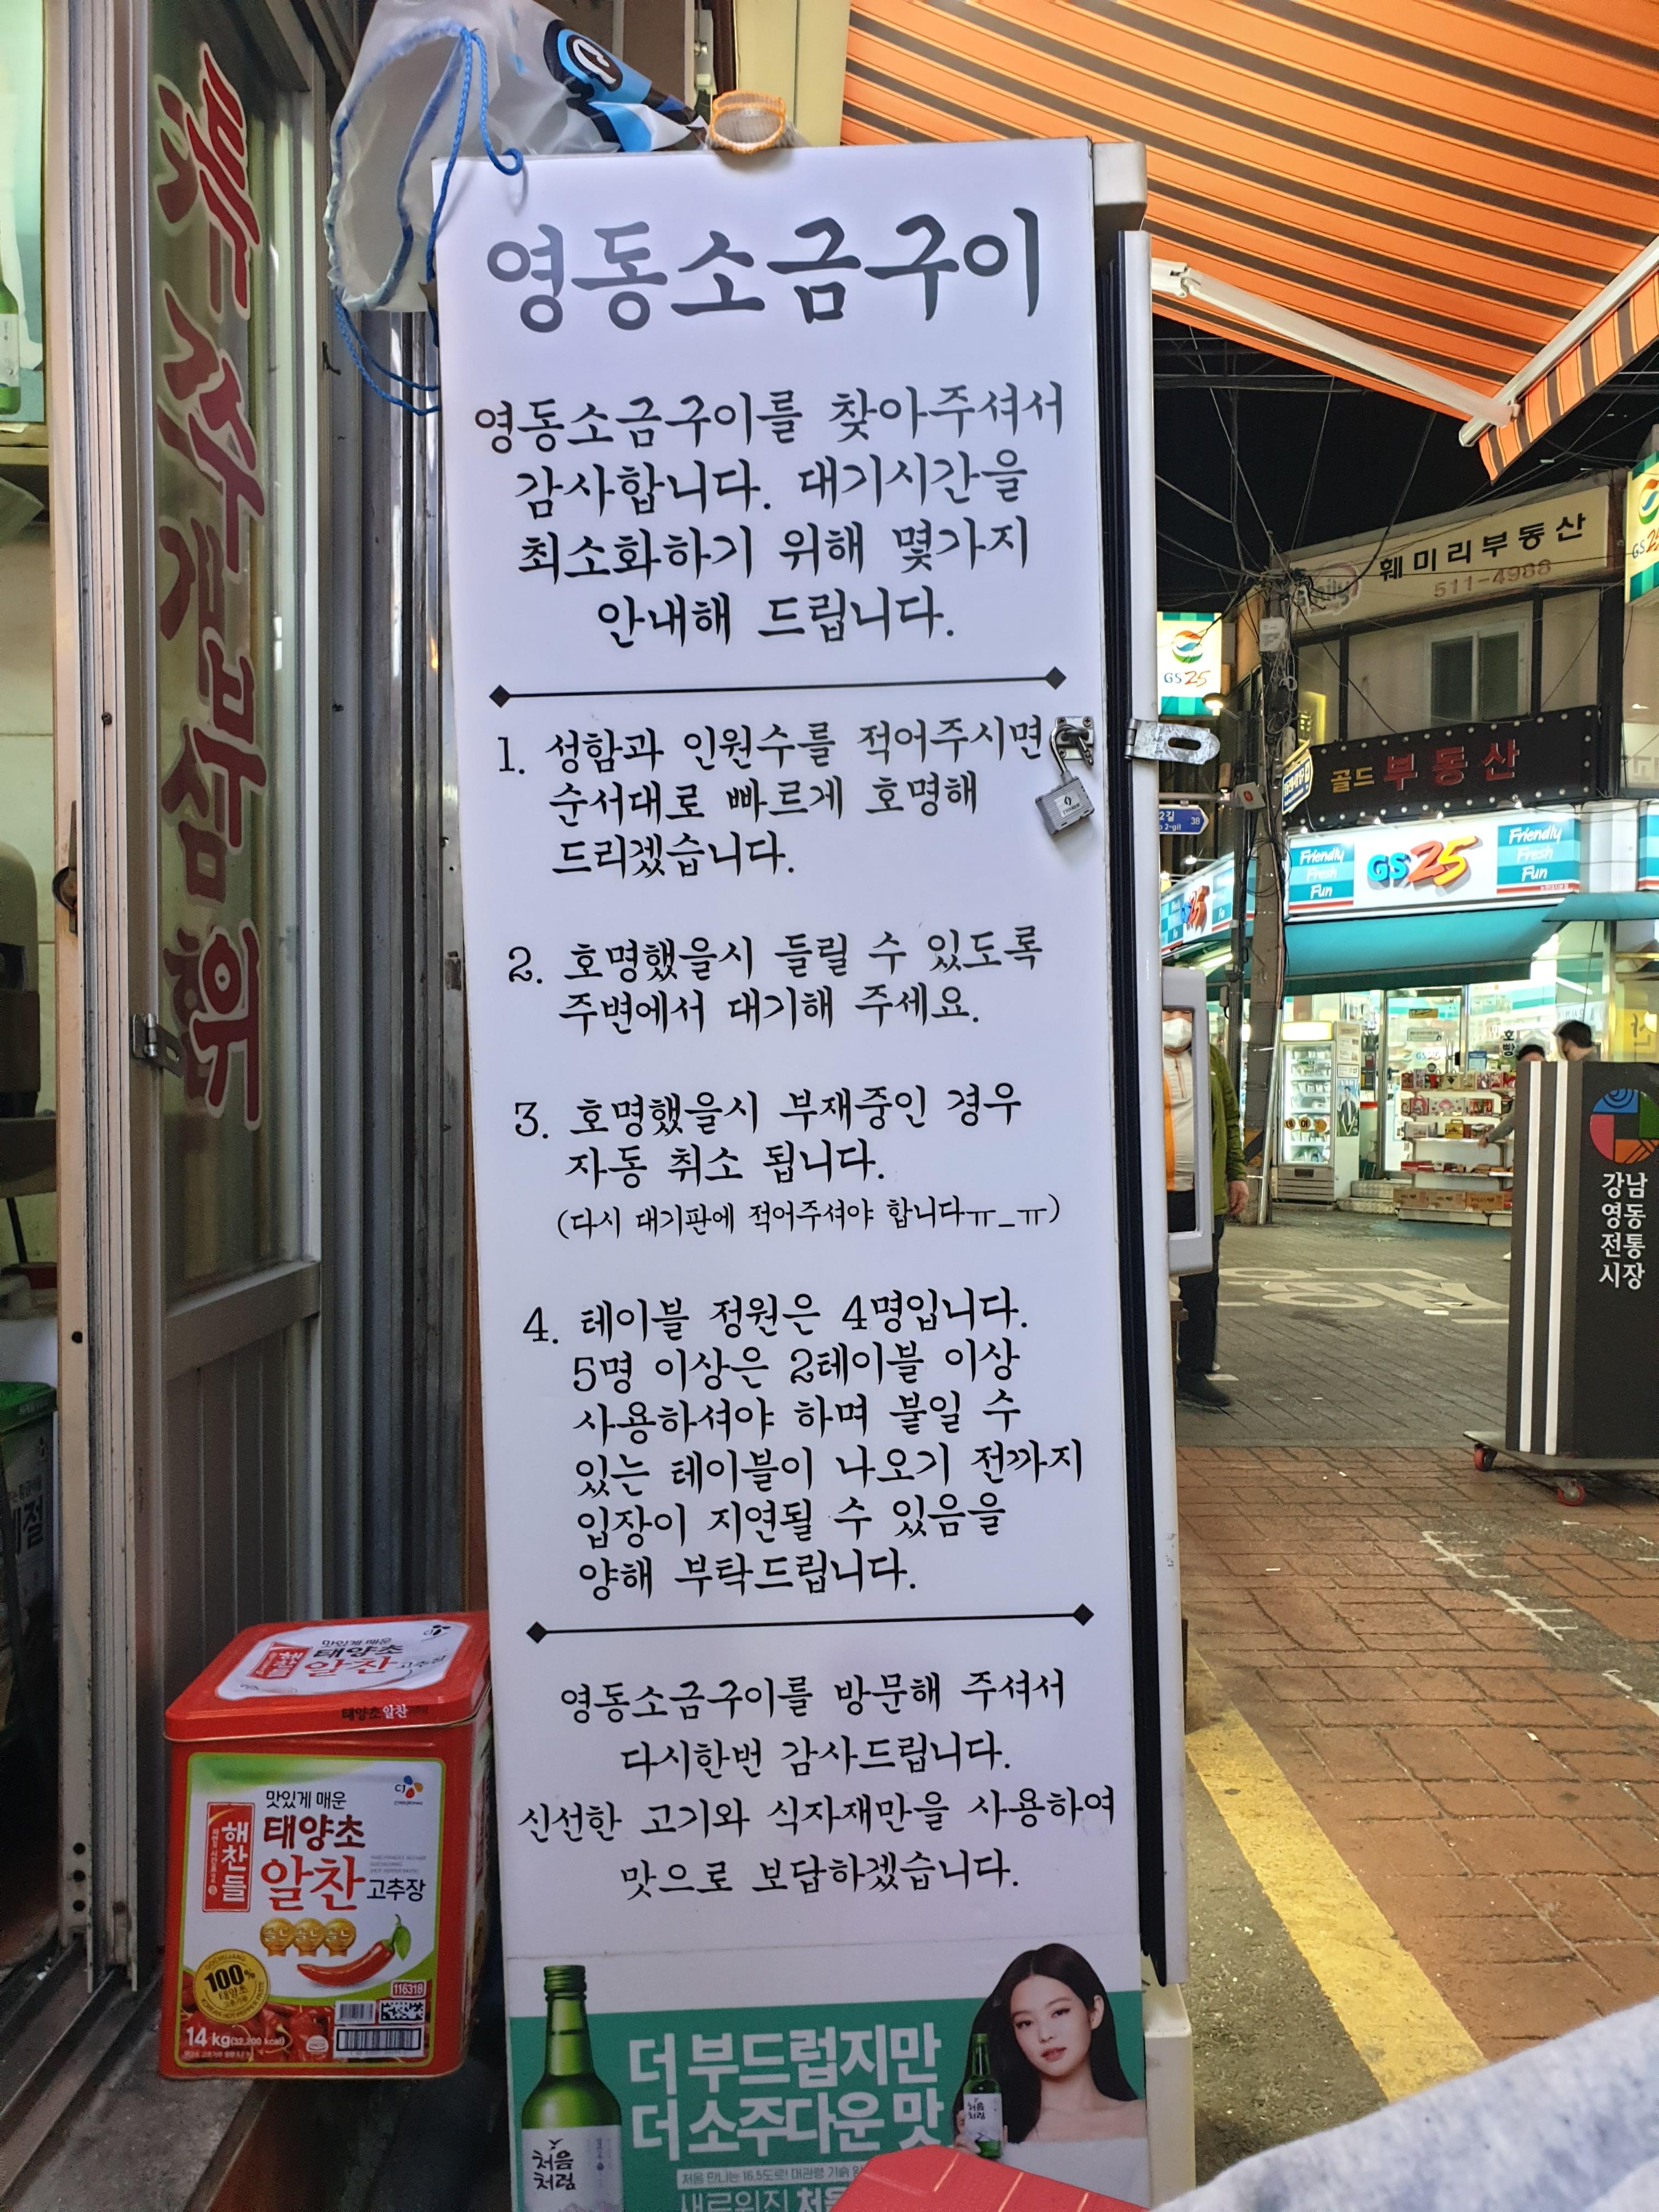 영동소금구이
영동소금구이를 찾아주셔서
감사합니다. 대기시간을
최소화하기 위해 몇가지
안내해 드립니다.
1. 성함과 인원수를 적어주시면
순서대로 빠르게 호명해
드리겠습니다.
2. 호명했을시 들릴 수 있도록
주변에서 대기해 주세요.
3. 호명했을시 부재중인 경우
자동 취소 됩니다.
(다시 대기판에 적어주셔야 합니다ㅠ_ㅠ)
4. 테이블 정원은 4명입니다.
5명 이상은 2테이블 이상
사용하셔야 하며 붙일 수
있는 테이블이 나오기 전까지
입장이 지연될 수 있음을
양해 부탁드립니다.
영동소금구이를 방문해 주셔서
다시한번 감사드립니다.
신선한 고기와 식자재만을 사용하여
맛으로 보답하겠습니다.
더 부드럽지만
더 소주다운 맛
처음
처럼
처음
처럼
맛있게 매운
태양초
알찬 고추장
해찬들
태양초알찬
CJ
맛있게 매운
해찬들
태양초
알찬 고추장
100%
태양초
116318
14 kg(32,200 kcal)
훼미리부동산
511-4988
GS25
GS25
골드 부동산
2길
38
Friendly
Fresh
Fun
GS25
Friendly
Fresh
Fun
강남
영동
전통
시장